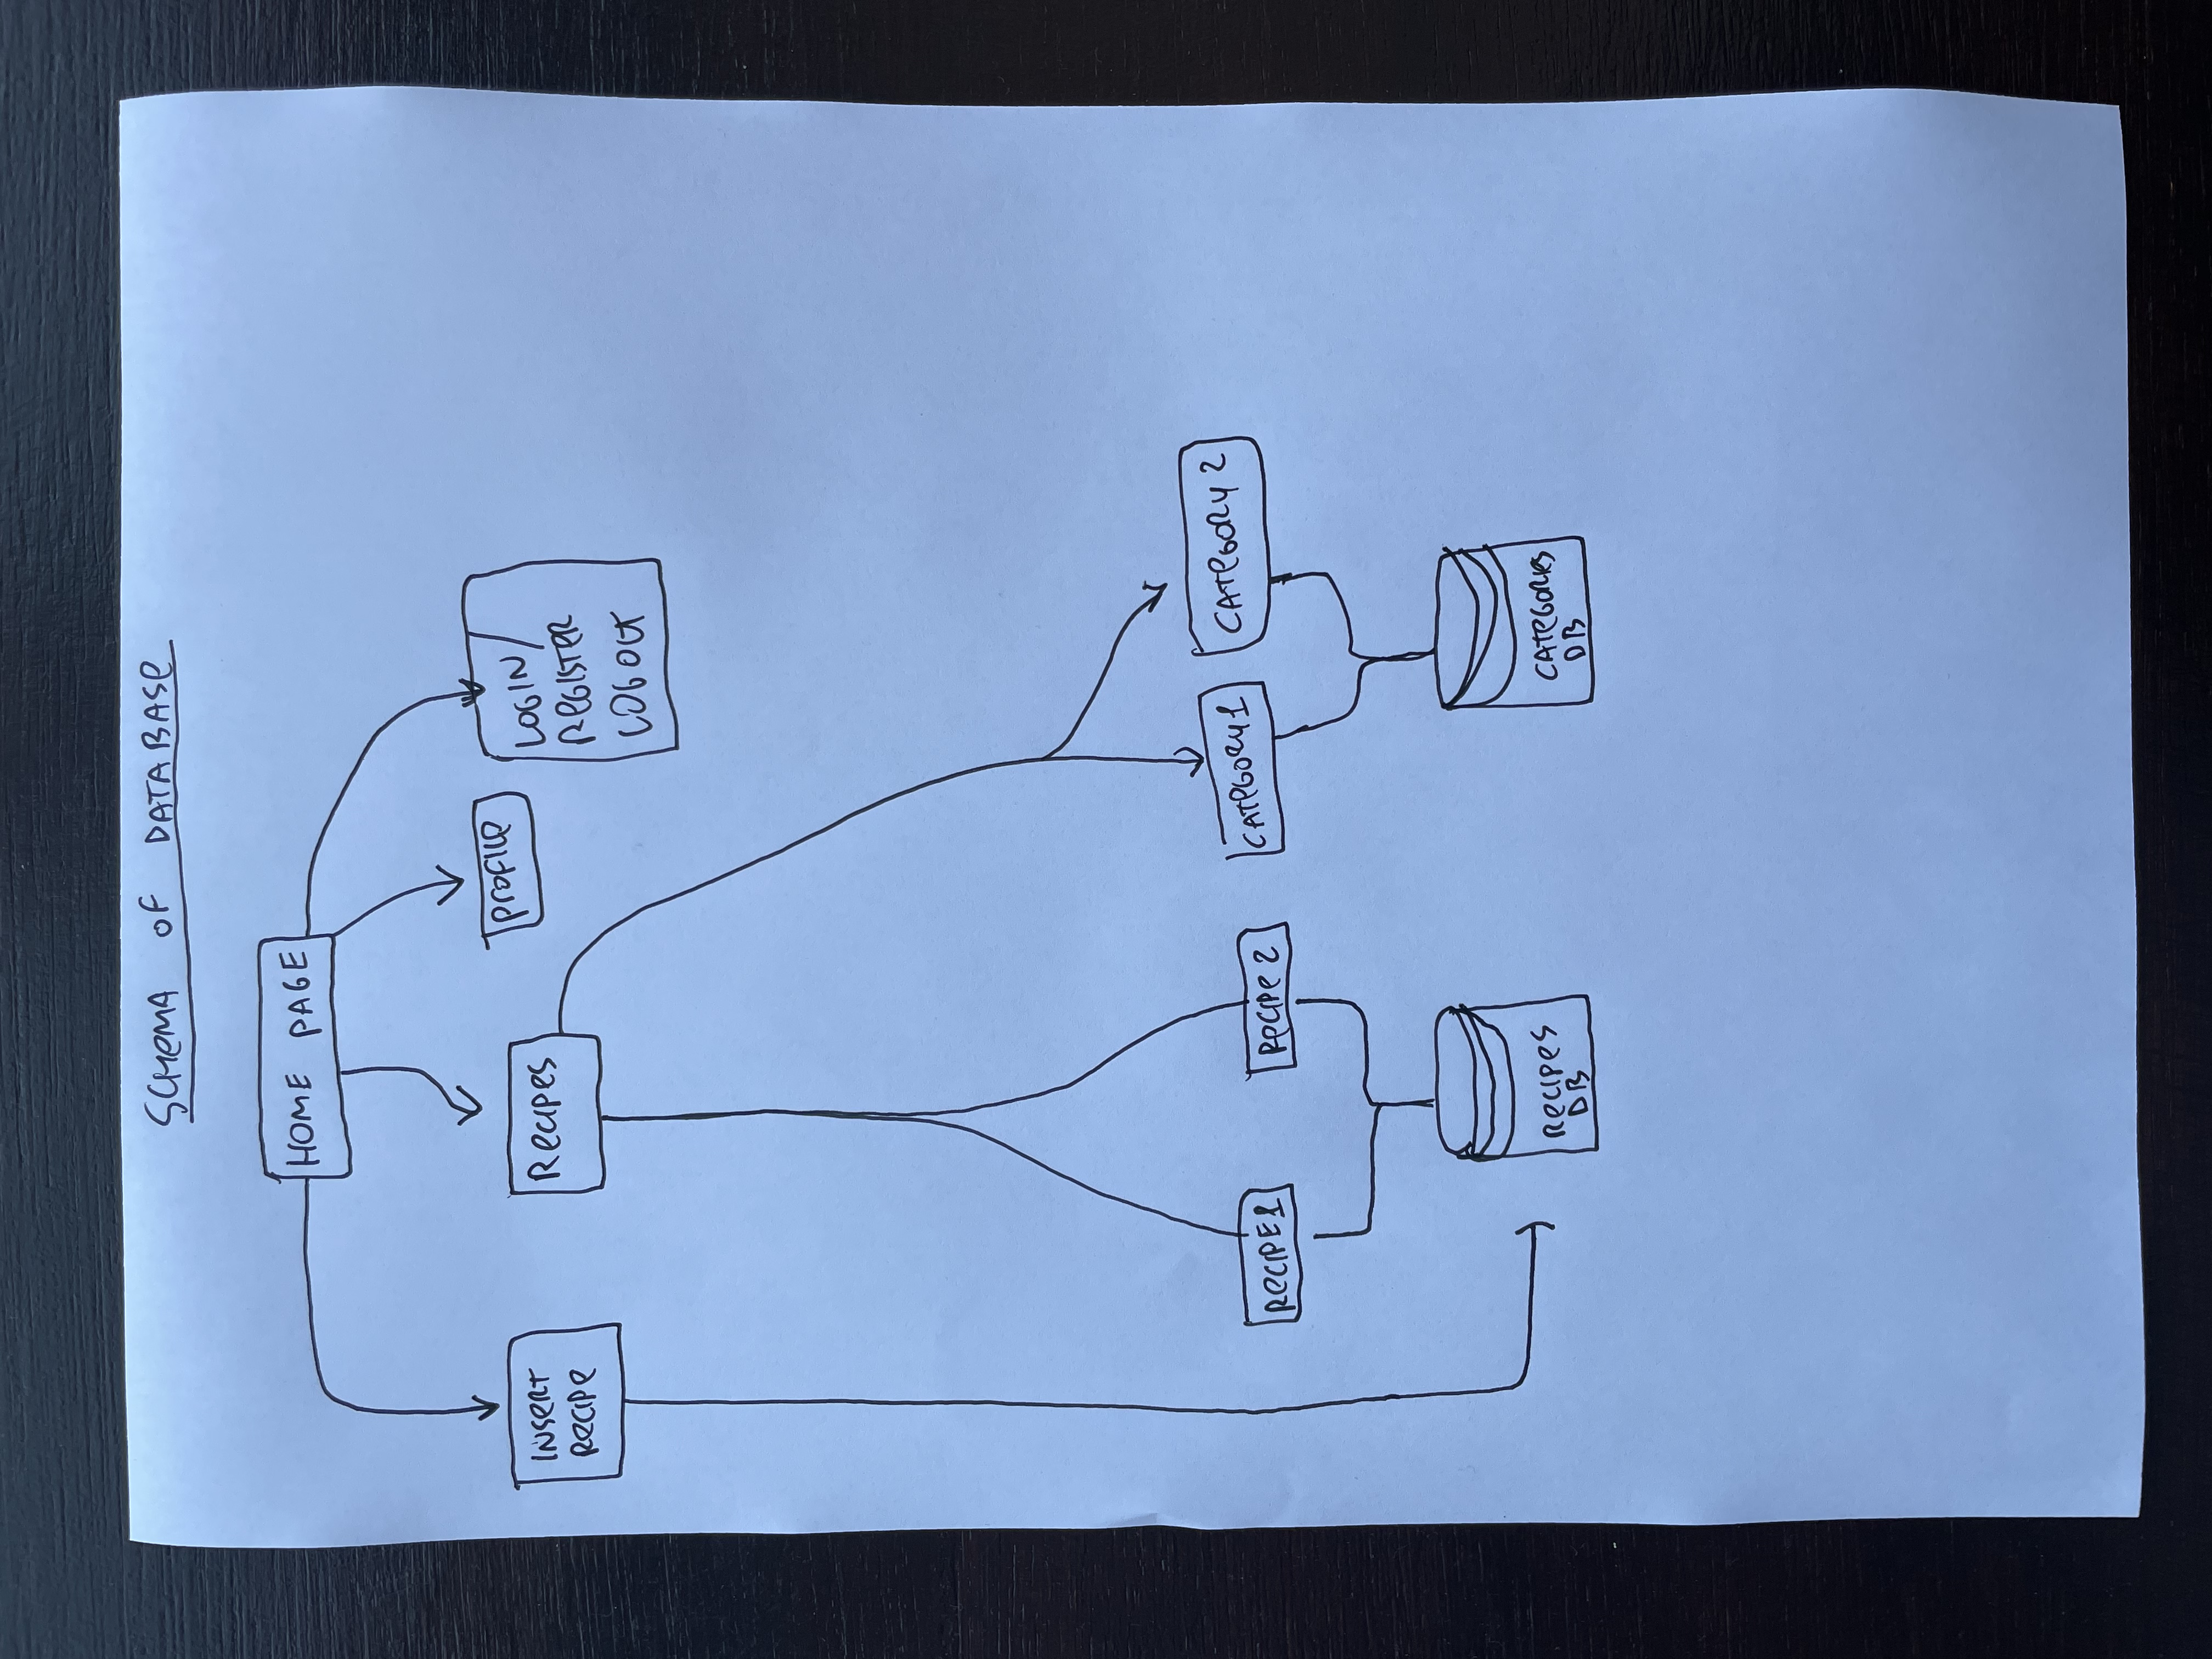 SCHEMA OF DATABASE
HOME PAGE
INSERT
RECIPE
RECIPES
PROFILE
LOGIN/
REGISTER
LOGOUT
RECIPE1
RECIPE 2
CATEGORY1
CATEGORY 2
RECIPES
DB
CATEGORIES
DB